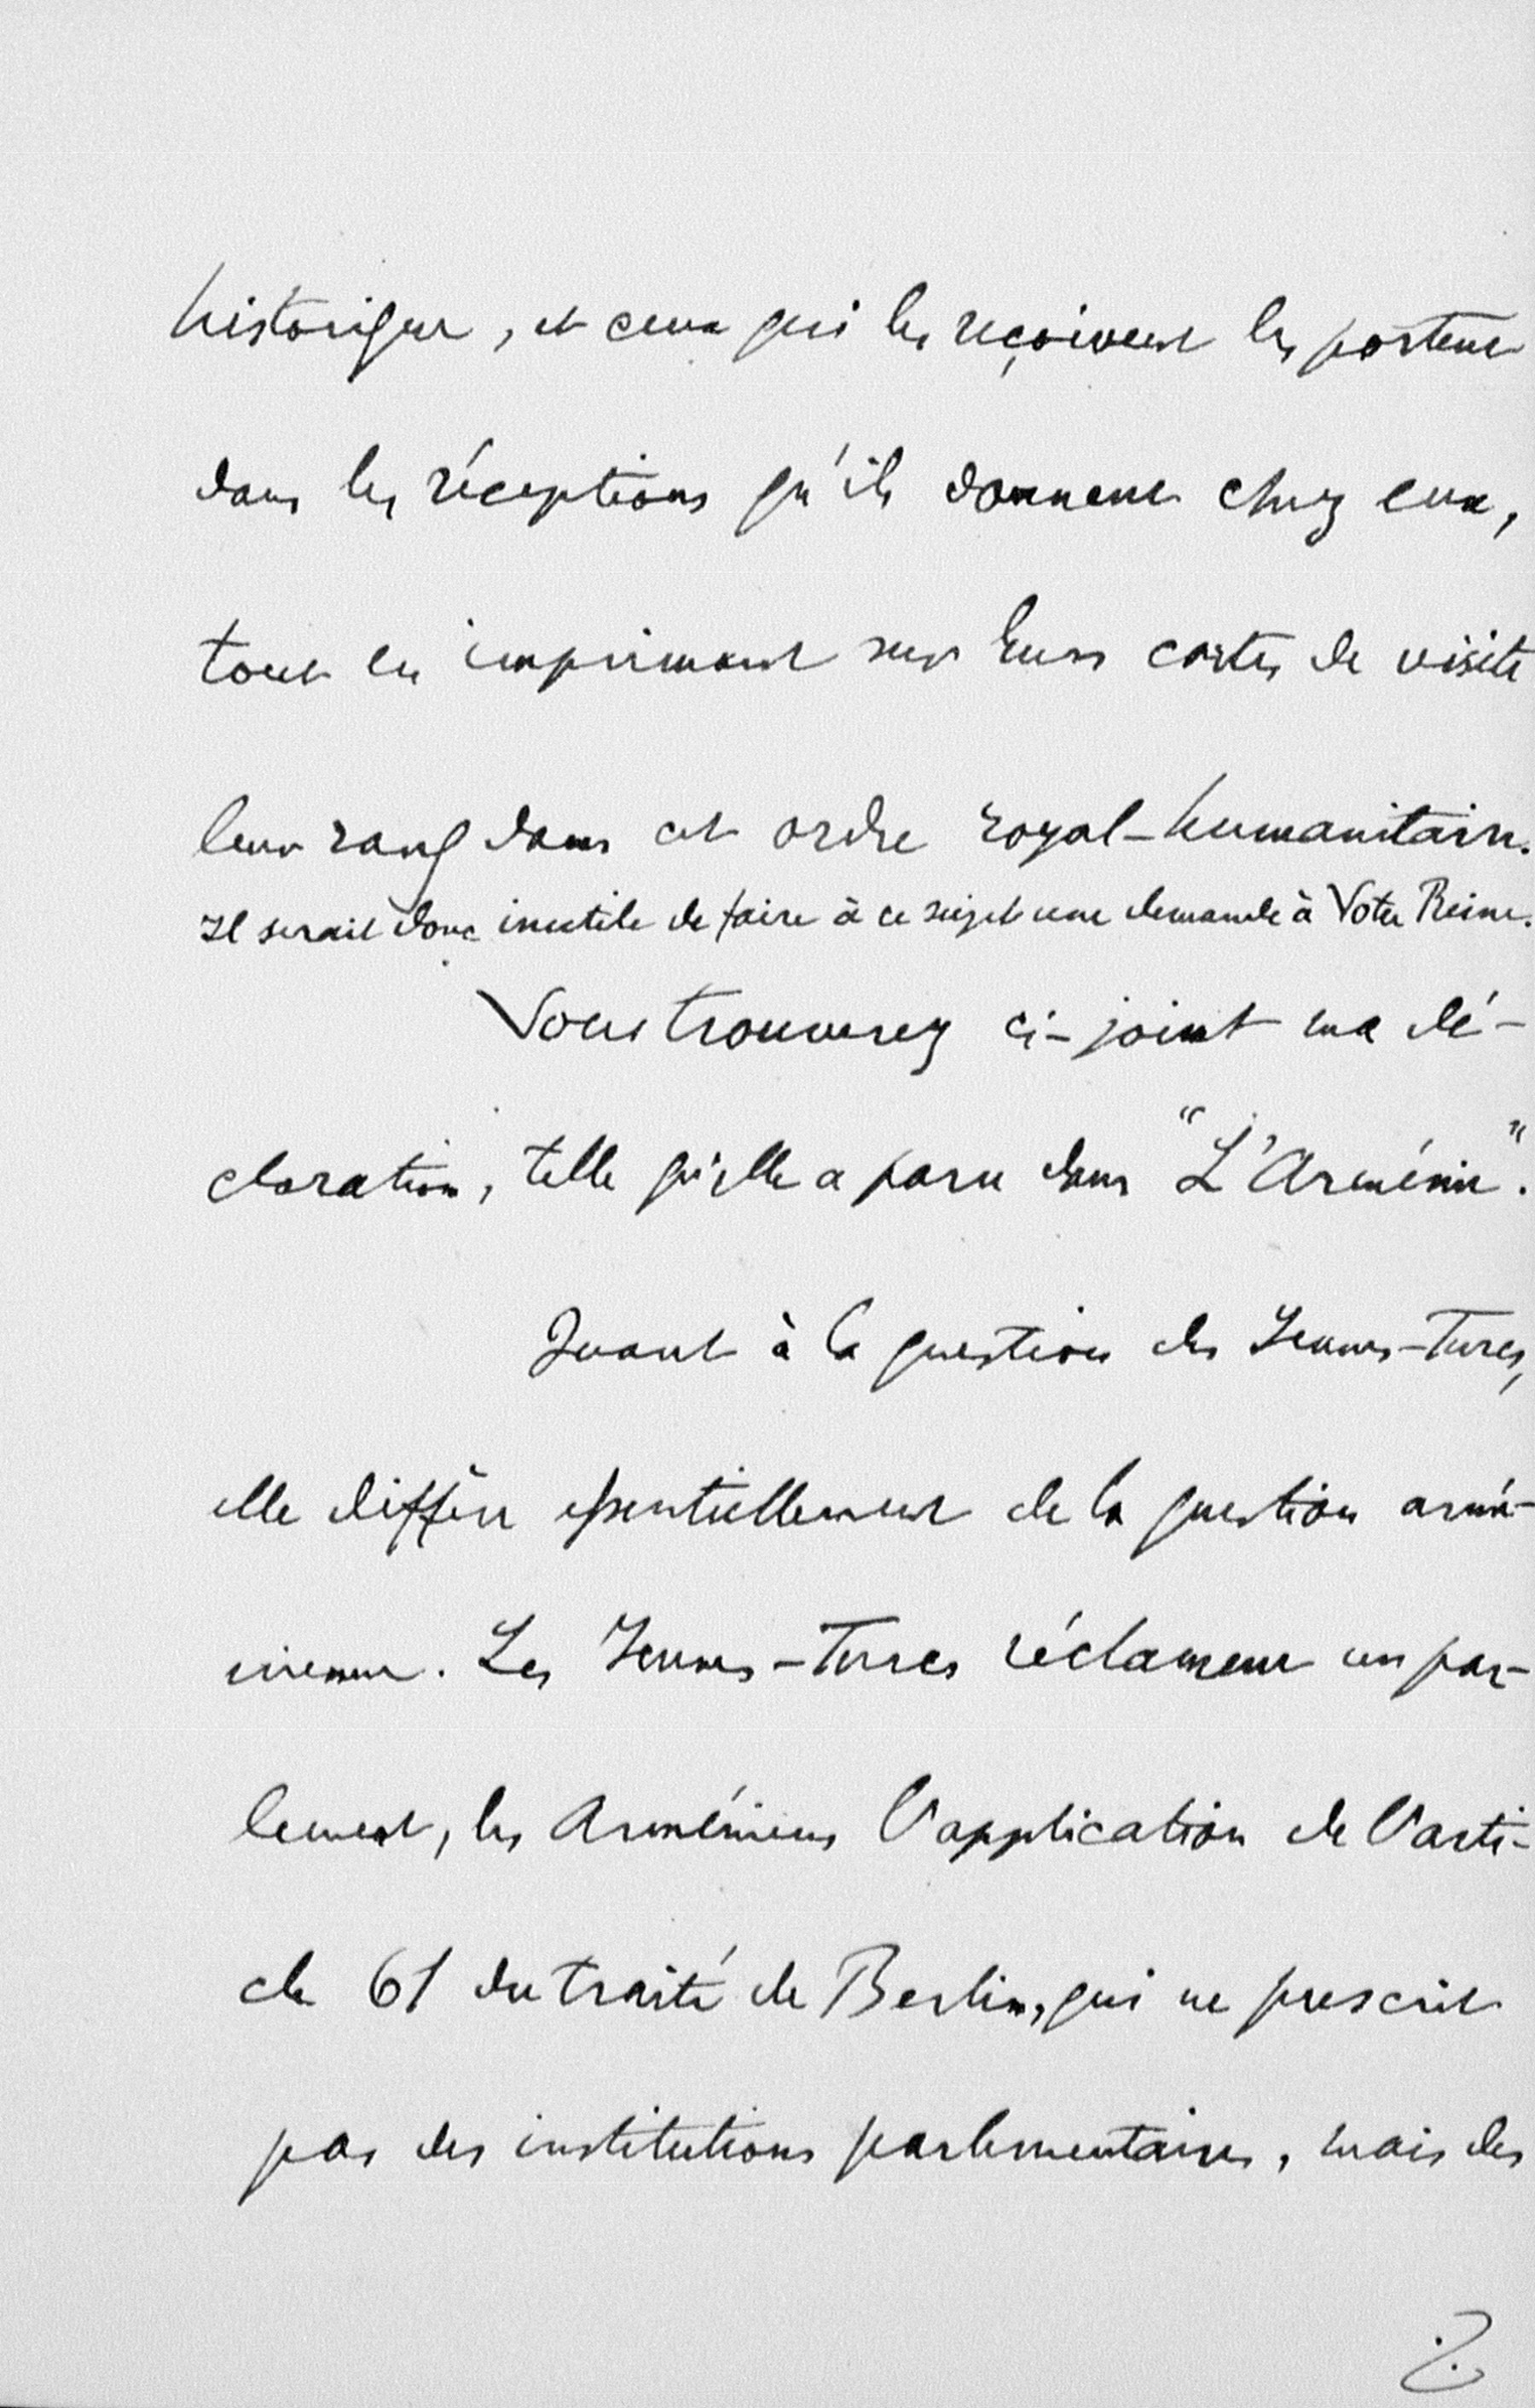 historique, et ceux qui les reçoivent les portent
dans les réceptions qu'ils donnent chez eux,
tout en imprimant sur leurs cartes de visite
leur rang dans cet ordre royal-humanitaire.
Il serait donc inutile de faire à ce sujet une demande à Votre Reine.
Vous trouverez ci-joint ma dé-
claration, telle qu'elle a paru dans "L'Arménie".
Quant à la question des Jeunes-Turcs,
elle diffère essentiellement de la question armé-
nienne. Les Jeunes-Turcs réclament un par-
lement, les Arméniens l'application de l'arti-
cle 61 du traité de Berlin, qui ne prescrit
pas des institutions parlementaires, mais des